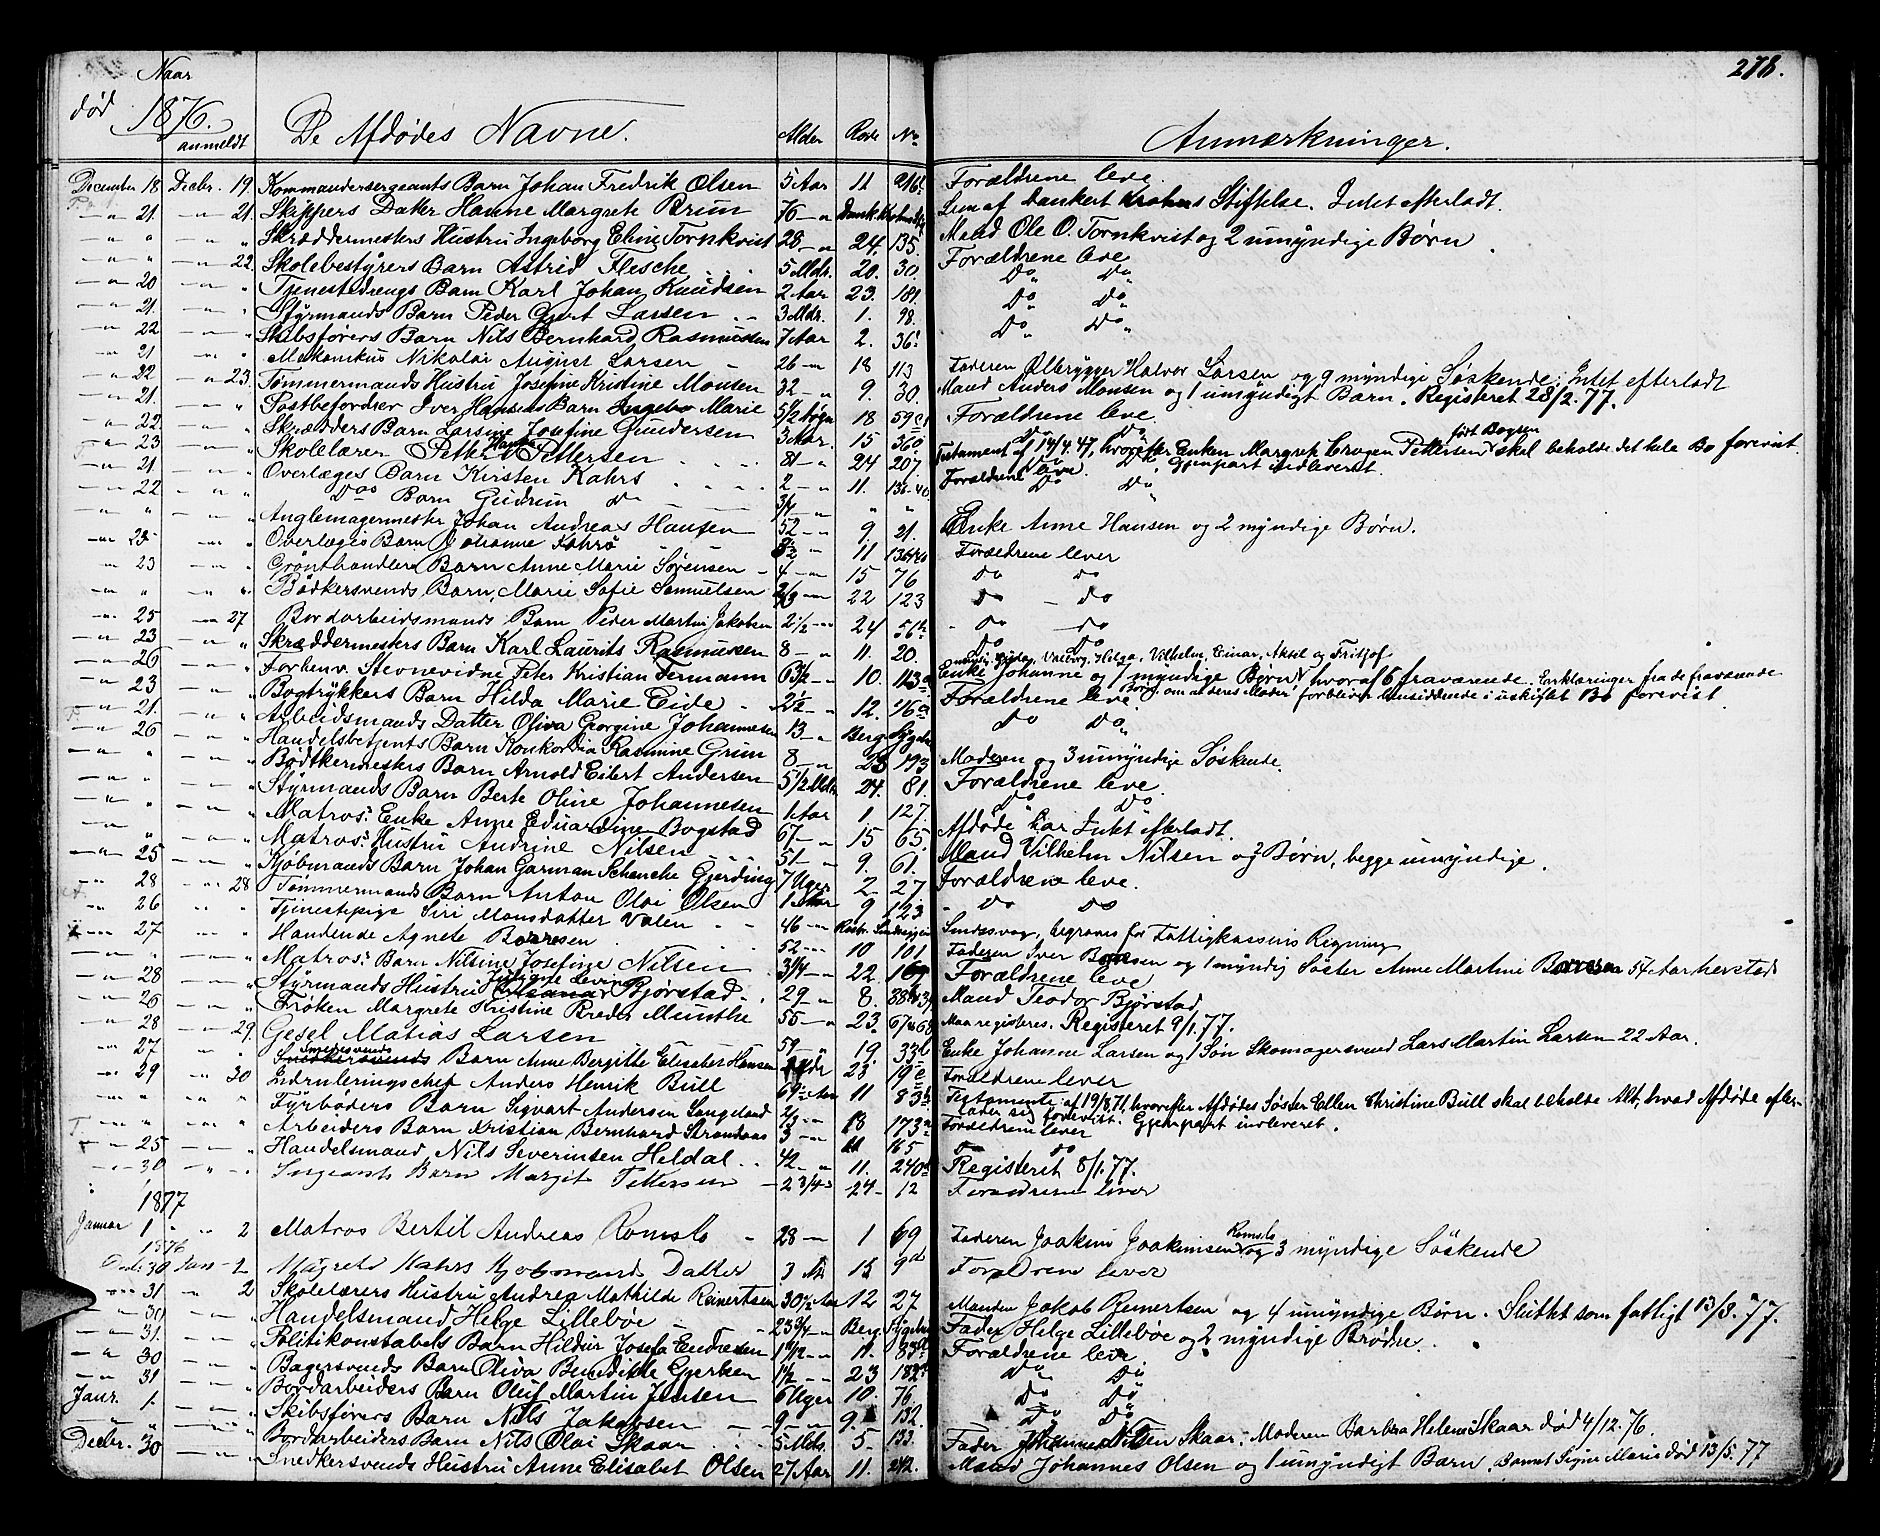 278.
Naar
død 1876. anmeldt De Afdødes Navne. Alder Rode No Anmærkninger.
December 18 Decbr. 19. Kommandersergeants Barn Johan Fredrik Olsen 5 Aar 11 216 Forældrene leve.
21. 21. Skippers Datter Hanne Margrete Brun 76 Dankert Krohns Stiftelse. Intet efterladt.
Skræddermesters Hustru Ingeborg Eline Tornkvist 28 24. 135. Mand Ole O. Tornkvist og 2 umyndige Børn.
22. Skolebestyrers Barn Astrid Flesche 5 Mdr. 20. 30. Forældrene leve
20 Tjenestedrengs Barn Karl Johan Knudsen 2 Aar 23. 181. Do Do
21. Styrmands Barn Peder Gjert Larsen 3 Mdr. 1. 98. Do Do
22 Skibsførers Barn Nils Bernhard Rasmussen 7 Aar 2. 36 Do Do
21 Mekanikus Nikolai August Larsen 26 18 113 Faderen Ølbrygger Halvor Larsen og 9 myndige Søskende. Intet efterladt
22 23. Tømmermands Hustru Josefine Kristine Monsen 32 9. 30. Mand Anders Monsen og 1 umyndigt Barn. Registeret 28/2. 77.
21. Postbefordrer Iver Hansens Barn Ingebor Marie 5 1/2 18 59 Forældrene leve.
22. Skrædders Barn Larsine Josefine Gundersen 3 Aar. 15 360 Do Do
23 Skolelærer Petter Pettersen 81 24 207 Testament af 14/4. 47, hvorefter Enken Margrete Pettersen født Bøgsen skal beholde det hele Bo forevist. Gjenpart indleveret.
21 Overlæges Barn Kirsten Kahrs 2 11. Forældrene leve.
22 Do Barn Gudrun Do 3/4 Do Do
Johan Andreas Hansen 52 9 21. Enke Anne Hansen og 2 myndige Børn.
25 Overlæges Barn Johanne Kahrs 11 Forældrene lever
23 Grønthandlers Barn Anne Marie Sørensen 4 15 76 Do Do
Bødkersvends Barn, Marie Sofie Samuelsen 22 123 Do Do
25 27 Bordarbeidsmands Barn Peder Martin Jakobsen 2 1/2 24 56 Do Do
23 Skræddermesters Barn Karl Laurits Rasmussen 8 11. 20. Do Do
26 Forhenv. Stevnevidne Peter Kristian Fermann 63 1/2 10. 113 Enke Johanne og 7 myndige Børn, Valborg, Helga, Vilhelm, Einar, Aksel og Fritjof hvoraf 6 fraværende. Enklæringer fra de fraværende
om at deres Moder forbliver hensiddende i uskiftet Bo forevist.
23 Bogtrykkers Barn Hilda Marie Eide 2 1/2 12. 46 Forældrene leve.
21. Arbeidsmands Datter Oliva Georgine Johannesen 13 Berg. Sygehus Do Do
26 Handelsbetjents Barn Konkordia Rasmine Grun 8 23 193 Moderen og 3 umyndige Søskende.
Bødtkermesters Barn Arnold Eilert Andersen 5 1/2 Mdr. 24. 81. Forældrene leve.
Styrmands Barn Berte Oline Johannesen 1 Aar 1 127. Do Do
Matros: Enke Anne Eduardine Bogstad 67 15 65. Afdøde har Intet efterladt.
Matros: Hustru Andrine Nilsen 51 9. 61. Mand Vilhelm Nilsen og 2 Børn, begge umyndige.
25 Kjøbmands Barn Johan Garman Schencke Gjerding 7 Uger 2 27 Forældrene leve.
28 28 Tømmermands Barn Anton Olai Olsen 1 Aar 9 123 Do Do
26 Tjenestepige Siri Monsdatter Valen 46 Sindssvag, begraves for Fattigkassens Regning
27 Handlende Agnete 52 10 101 Faderen Iver og 1 myndig Søster Anne Martine 54 Aar
Matros: Barn Nilsine Josefine Nilsen 3 1/4 22 Forældrene leve
28 Styrmands Hustru Bjørstad 29 8. Mand Teodor Bjørstad
26 Frøken Margrete Kristine Breder Munthe 55 23. Maa registeres. Registeret 9/1. 77.
28 29. Gesel Matias Larsen 59 19. 33 Enke Johanne Larsen og 1 Søn Skomagersvend Lars Martin Larsen 22 Aar.
27 Barn Anne Bergitte Elisabet Hansen 23 19 Forældrene lever
29 30 Indrulleringschef Anders Henrik Bull 69 Aar 11 83 Testamente af 19/8. 71, hvorefter Afdødes Søster Ellen Christine Bull skal beholde Alt, hvad Afdøde efter-
lader sig forevist. Gjenpart indleveret.
Fyrbøders Barn Sigvart Andersen Langeland 18 173 Forældrene lever
Arbeiders Barn Kristian Bernhard Strandaas 3 11 165 Do Do
25 Handelsmand Nils Severinsen Heldal 42 11. 240 Registeret 8/1. 77.
30 Sergeants Barn Margit Pettersen 2 3/4 24 12 Forældrene lever
1877
Januar 1 2 Matros Bertil Andreas Romslo 28 1 69 Faderen Joakim Joakimsen Romslo og 3 myndige Søskende
1876
Decbr 30 Jan 2 Magrete Kahrs Kjøbmands Datter 3 15 9 Forældrene lever
31 2 Skolelærers Hustru Andrea Mathilde Reinertsen 30 1/2 Aar 12 27 Manden Jakob Reinertsen og 4 umyndige Børn. Sluttet som fattigt 13/8. 77.
30 Handelsmand Helge Lillebøe 23 3/4 Berg. Sygehus Fader Helge Lillebøe og 2 myndige Brødre.
31. Politikonstabels Barn Hildur Josefa Endresen 11. 83 Forældrene leve
30 Bagersvends Barn Oliva Benedikte Gjertsen 1 1/2 23 182 Do Do
31 Bordarbeiders Barn Oluf Martin Jensen 6 Uger 10. 76. Do Do
Janr. 1. Skibsførers Barn Nils Jakobsen 9 9 132. Do Do
Decbr. 30 Bordarbeiders Barn Nils Olai Skaar 5 Mdr. 5. 133. Fader Nilsen Skaar. Moderen Barbra Helene Skaar død 4/12. 76.
Snedkersvends Hustru Anne Elisabet Olsen 27 Aar 11. 242. Mand Johannes Olsen og 1 umyndigt Barn. Barnet Signe Marie død 13/5. 77